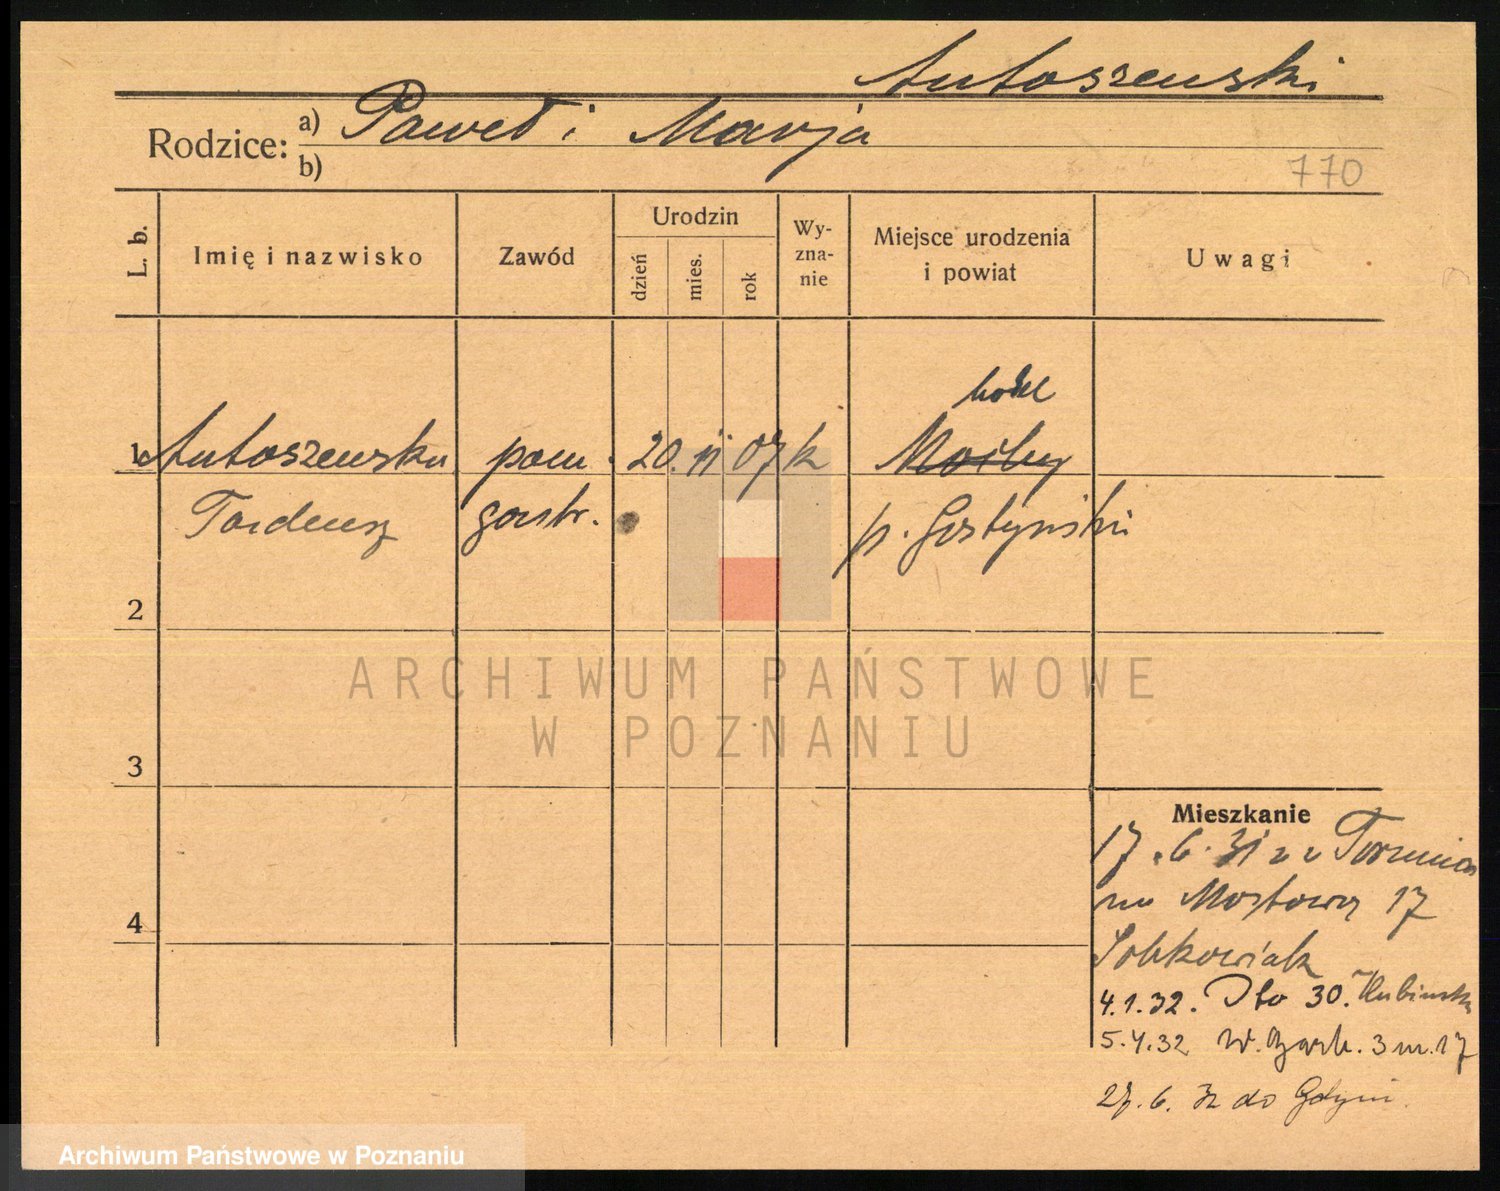 Antoszewski
Rodzice: a) Paweł i Marja
b)
770
L. b.
Imię i nazwisko
Zawód
Urodzin
dzień
mies.
rok
Wy-
zna-
nie
Miejsce urodzenia
i powiat
Uwagi
1 Antoszewski pom. 20. 11 07 k
Tadeusz gastr. p. Gostyński
2
3
4
ARCHIWUM PAŃSTWOWE
W POZNANIU
Mieszkanie
17.6.31 z Torunia
na Mostową 17
Sobkowiak
4.1.32. Dto 30.
5.4.32 W. Garb. 3 m. 17
27.6.32 do Gdyni.
Archiwum Państwowe w Poznaniu